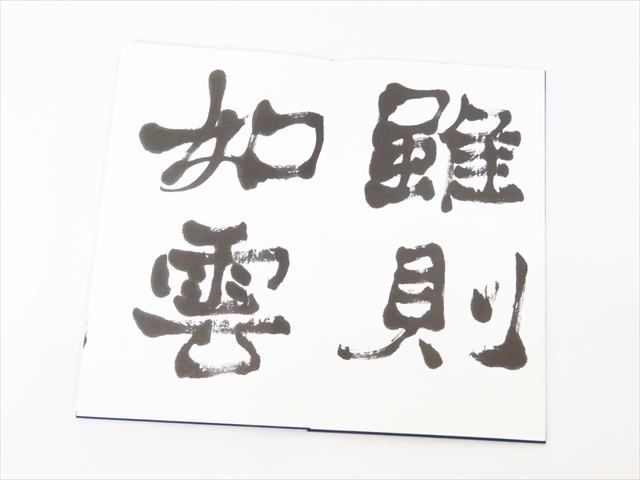 雖則
如雲